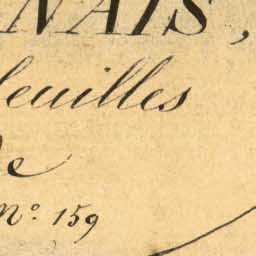 NAIS,
feuilles
de
N.º 159